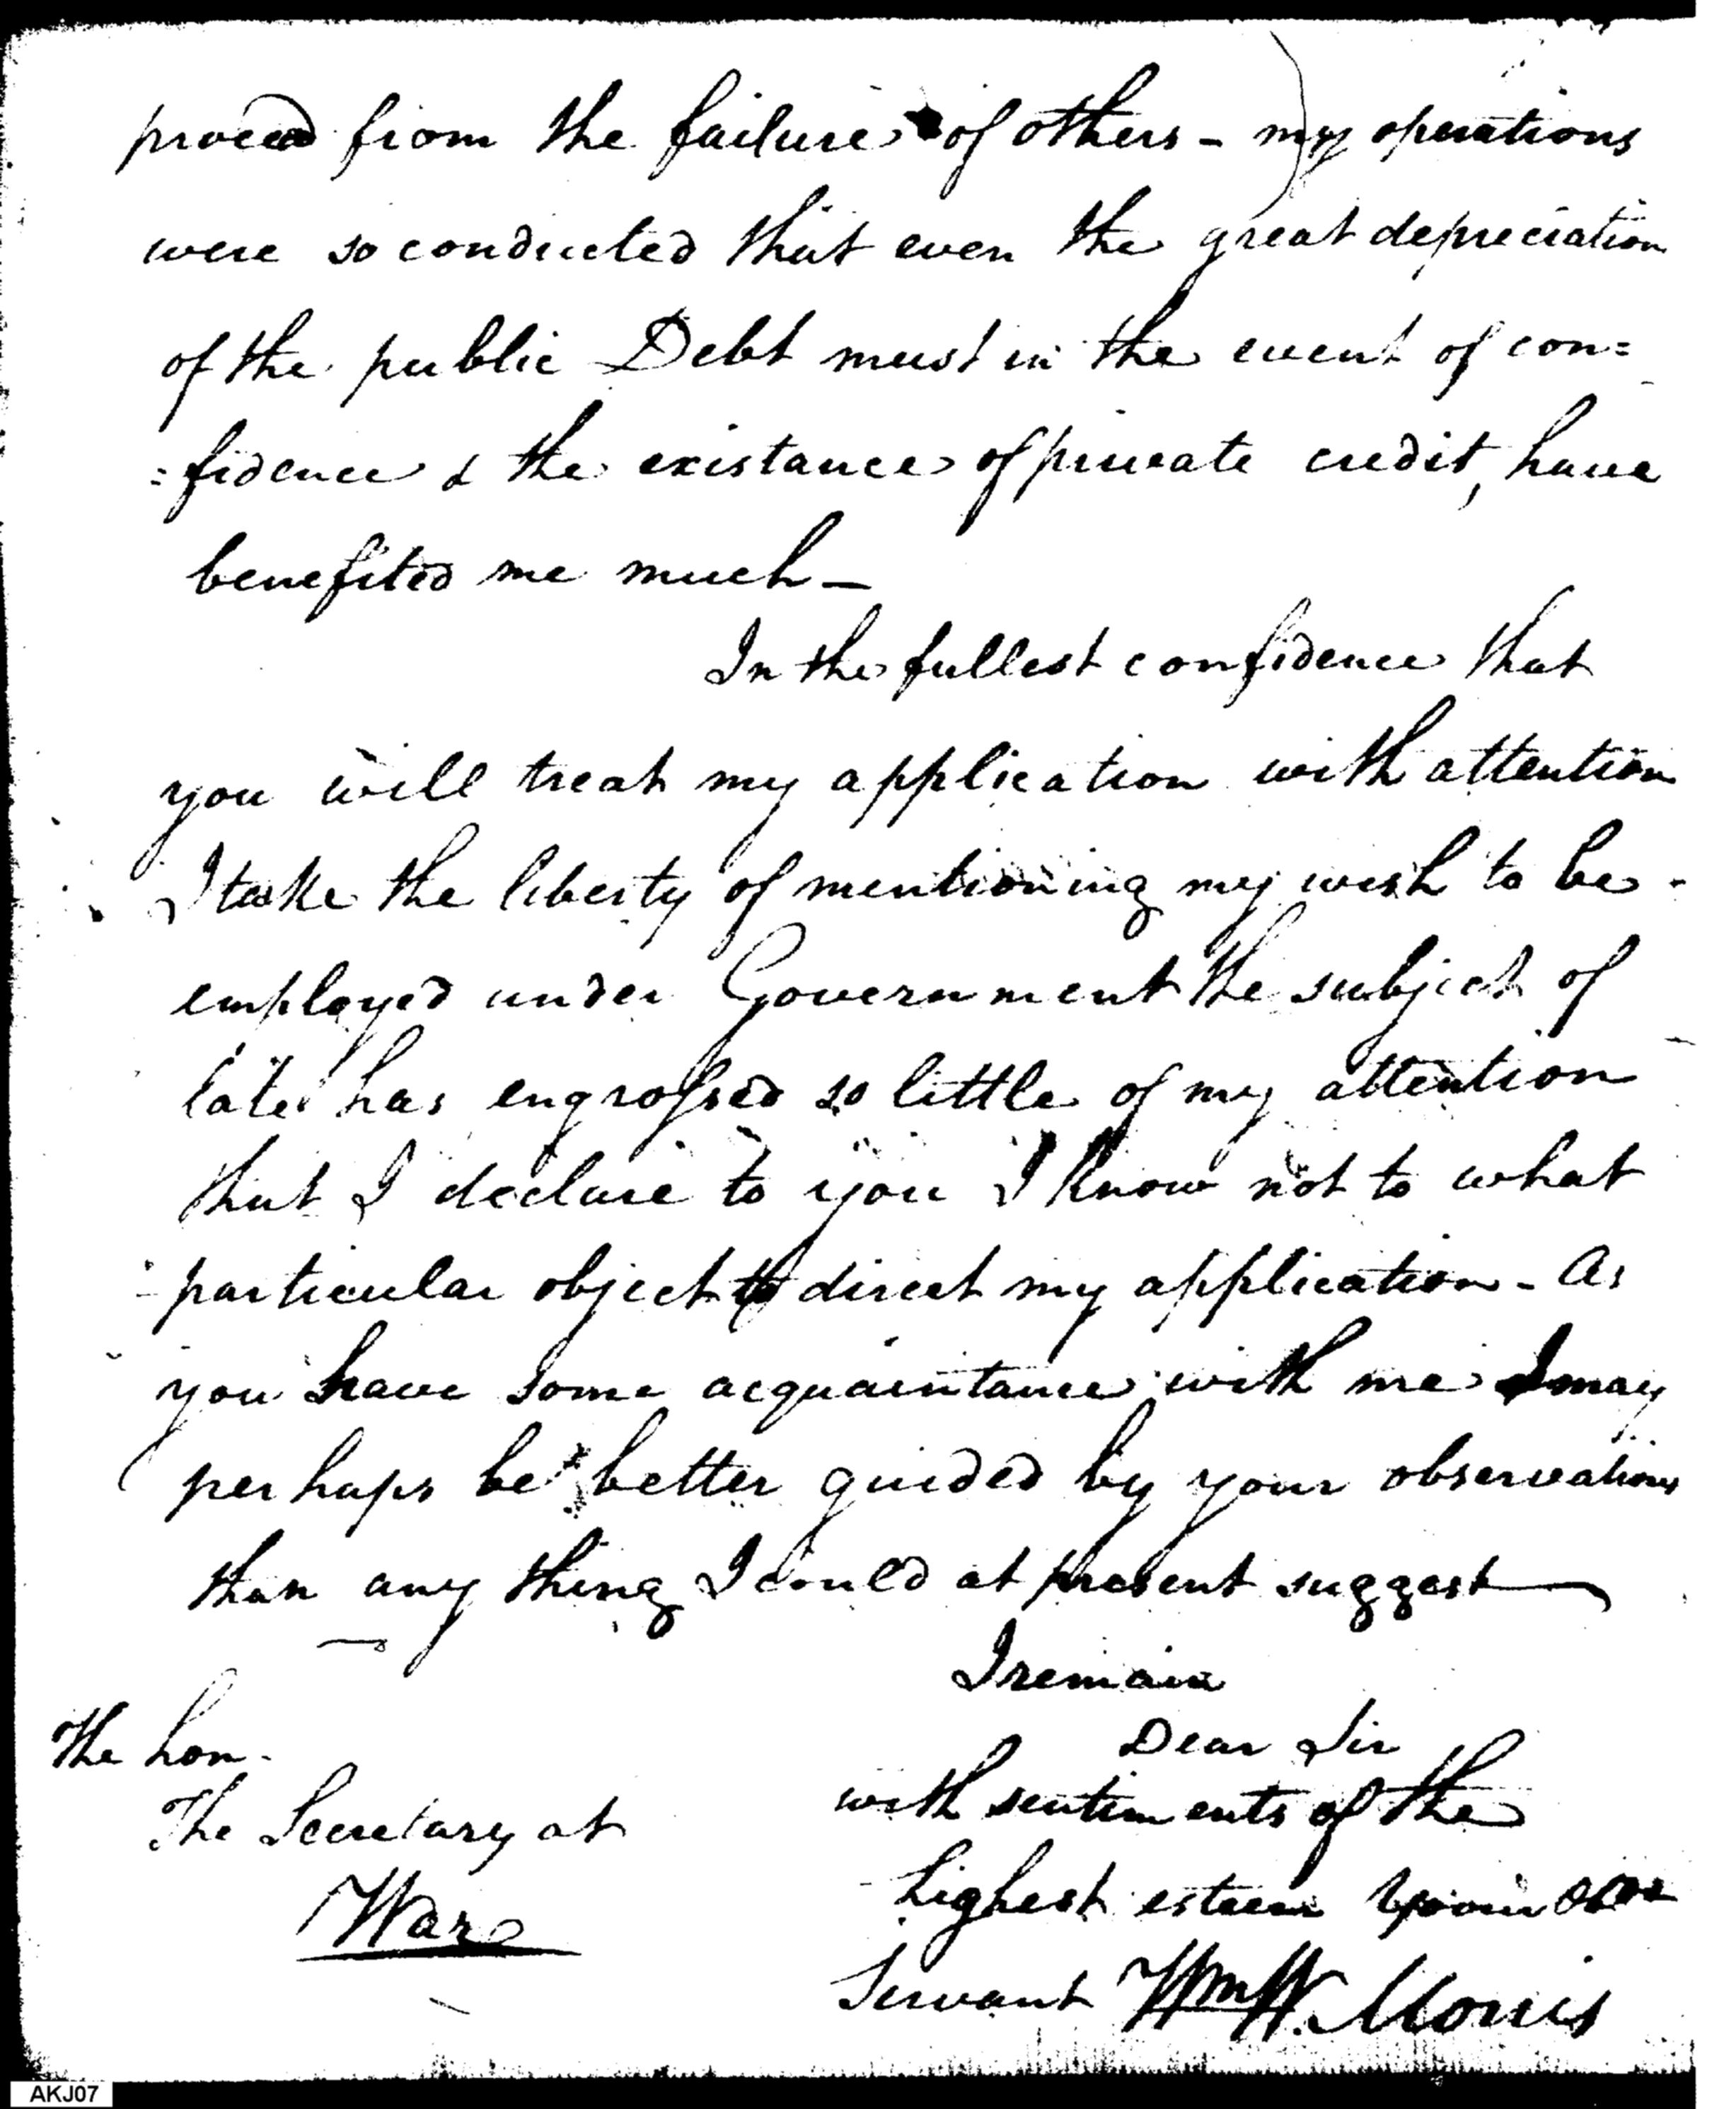 proceed from the failure of others - my operations
were so conducted that even the great depreciation
of the public Debt must in the event of con=
=fidence & the existance of private credit, have
benefited me much-
In the fullest confidence that
you will treat my application with attention
I take the liberty of mentioning my wish to be
employed under Government the subject of
late has engrossed so little of my attention
that I declare to you I know not to what
particular object to direct my application - As
you have some acquaintance with me I may
perhaps be better guided by your observations
than any thing I could at present suggest
I remain
Dear Sir
with sentiments of the
highest esteem Your
Servant Wm W. Morris
The hon.
The Secretary at
War
AKJ07